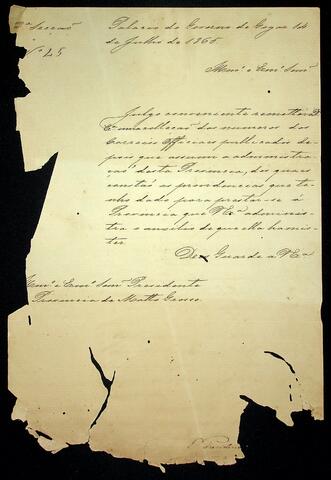 2ª Secção
Nº 45
Palacio do Governo de Goyaz 14
de Julho de 1865.
Illmº e Exmº Senr
Julgo conveniente remetter a V.
Exª uma collecção dos numeros dos
Correios Officiaes publicados de-
pois que assumi a administra-
ção desta Provincia, dos quaes
constão as providencias que te-
nho dado para prestar-se á
Provincia que V Exª adminis-
tra o auxilio de que ella ha mis-
ter.
Deos Guarde a V Exª
Illmº e Exmº Senr Presidente
Provincia de Matto Grosso